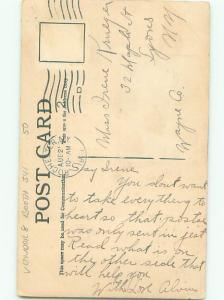 POST CARD
This space may be used for Correspondence.
AUG 2
10-AM
Miss Irene Krueger
32 Maple St
Lyons
N.Y.
Wayne Co.
Say Irene.
You don't want
to take everything to
heart so that postal
was only sent in jest
Read what is on
the other side that
will help you
With Love Alvin
VENDOR 8 BOOTH 341 50